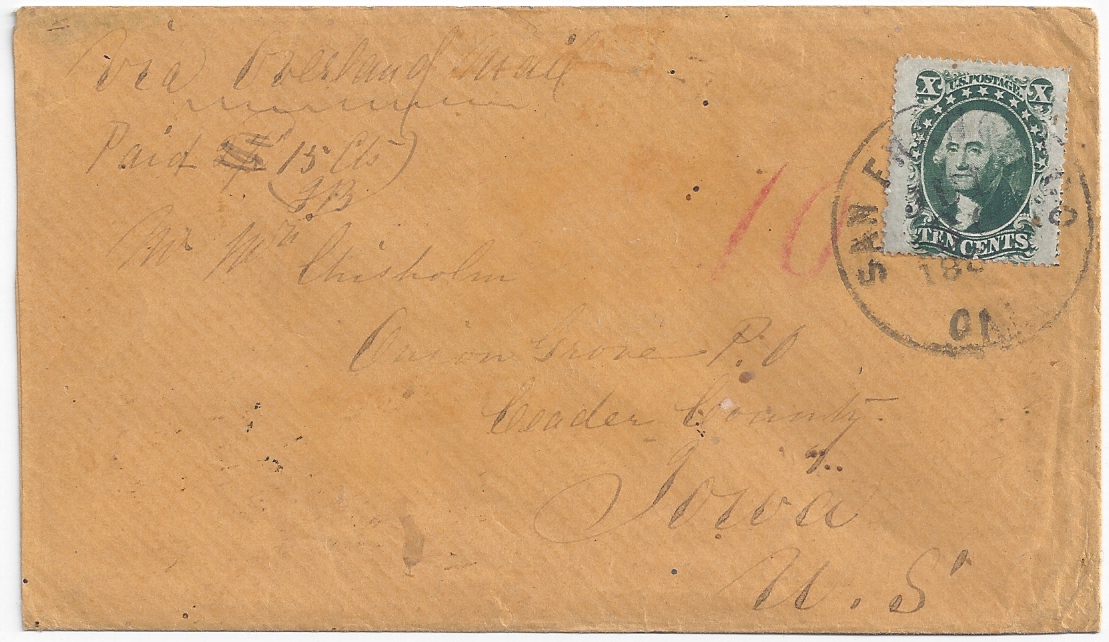 Via Overland Mail
Paid 15 Cts
JB
Mr Wm Chisholm
Onion Grove P.O
Ceader County
Iowa
U. S
10
X U.S. POSTAGE X
TEN CENTS
SAN
CAL